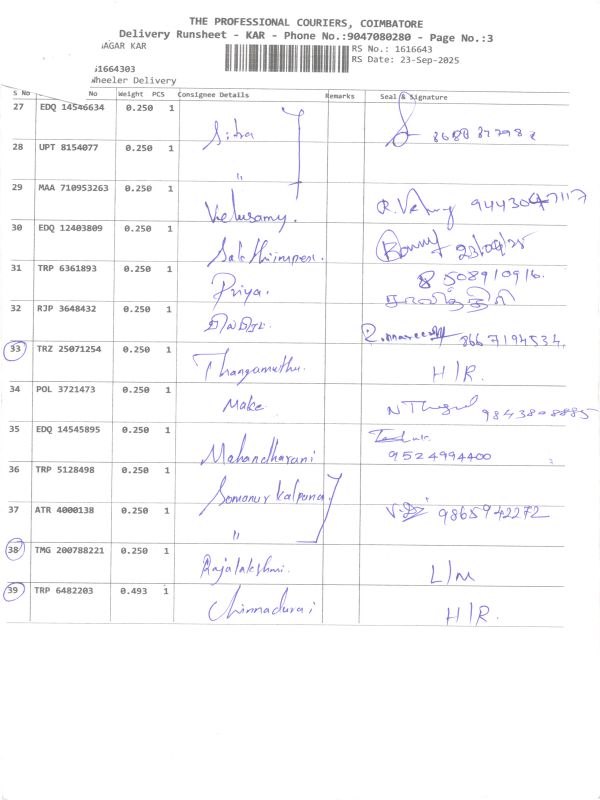 THE PROFESSIONAL COURIERS, COIMBATORE
Delivery Runsheet - KAR - Phone No.:9047080280 - Page No.:3
AGAR KAR RS No.: 1616643
RS Date: 23-Sep-2025
61664303
Wheeler Delivery
S No No Weight PCS Consignee Details Remarks Seal & Signature
27 EDQ 14546634 0.250 1 Siba
28 UPT 8154077 0.250 1 "
29 MAA 710953263 0.250 1 Velusamy. 9443047117
30 EDQ 12403809 0.250 1 23/09/25
8508910916.
31 TRP 6361893 0.250 1 Priya.
32 RJP 3648432 0.250 1 8667194534.
33 TRZ 25071254 0.250 1 Thangamuthu. H/R.
34 POL 3721473 0.250 1 Make 9843808885
35 EDQ 14545895 0.250 1 Mahandharani
9524994400
36 TRP 5128498 0.250 1 Somanur Kalpana
37 ATR 4000138 0.250 1 " 9865942272
38 TMG 200788221 0.250 1 Rajalakshmi. L/M
39 TRP 6482203 0.493 1 Chinnadurai H/R.